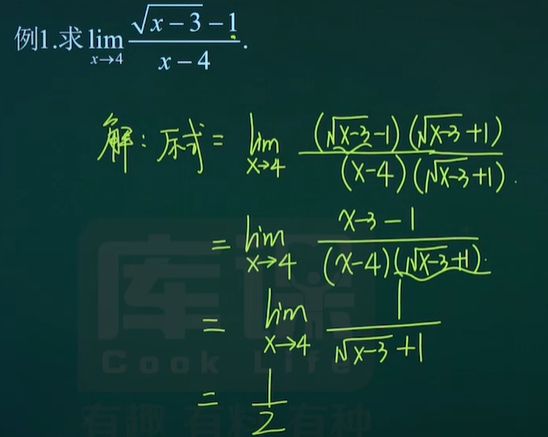 例1.求 lim_{x→4} \frac{\sqrt{x-3}-1}{x-4}.
解：原式 = lim_{x→4} \frac{(\sqrt{x-3}-1)(\sqrt{x-3}+1)}{(x-4)(\sqrt{x-3}+1)}.
= lim_{x→4} \frac{x-3-1}{(x-4)(\sqrt{x-3}+1)}.
= lim_{x→4} \frac{1}{\sqrt{x-3}+1}
库课
Cook Life
= \frac{1}{2}
有趣 有料 有种